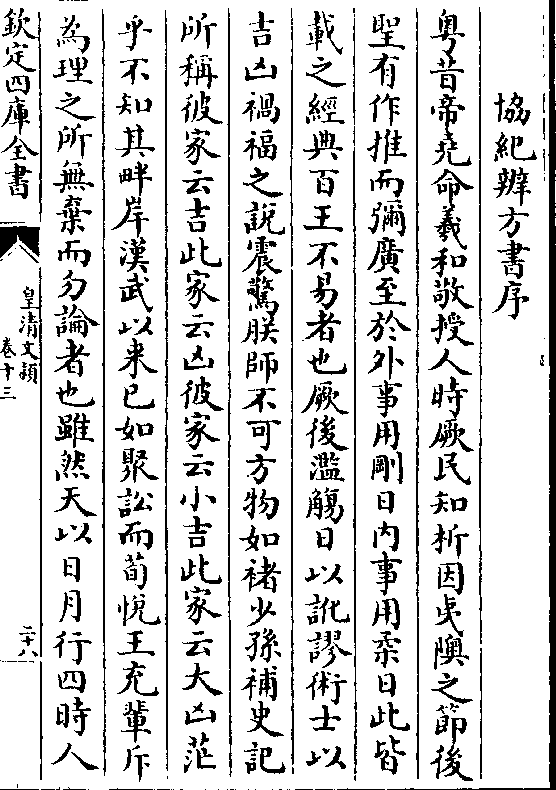 協紀辨方書序
粤昔帝堯命羲和敬授人時厥民知析因夷隩之節後
聖有作推而彌廣至於外事用剛日内事用柔日此皆
載之經典百王不易者也厥後濫觴日以訛謬術士以
吉凶禍福之說震驚朕師不可方物如褚少孫補史記
所稱彼家云吉此家云凶彼家云小吉此家云大凶茫
乎不知其畔岸漢武以来已如聚訟而荀悅王充輩斥
為理之所無棄而勿論者也雖然天以日月行四時人
欽定四庫全書
皇清文頴
卷十三
二十八